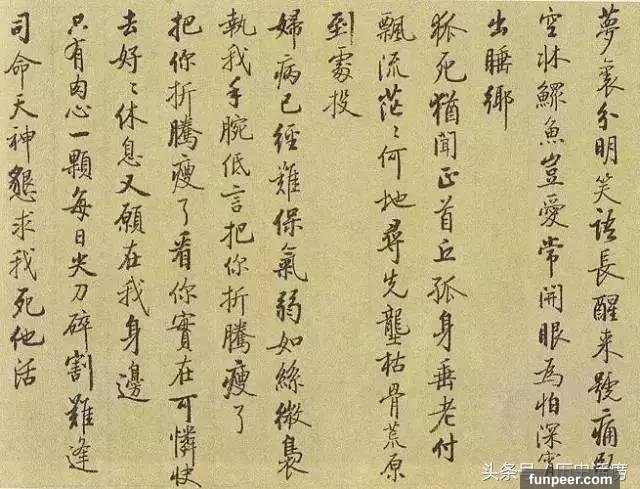 夢裏分明笑語長醒来號痛卧
空牀鰥魚豈愛常開眼為怕深宵
出睡鄉
狐死猶聞正首丘孤身垂老付
飄流茫〻何地尋先壟枯骨荒原
到處投
婦病已經難保氣弱如絲微裊
執我手腕低言把你折騰瘦了
把你折騰瘦了看你實在可憐快
去好〻休息又願在我身邊
只有肉心一顆每日尖刀碎割難逢
司命天神懇求我死他活
头条号 / 历史
funpeer.com